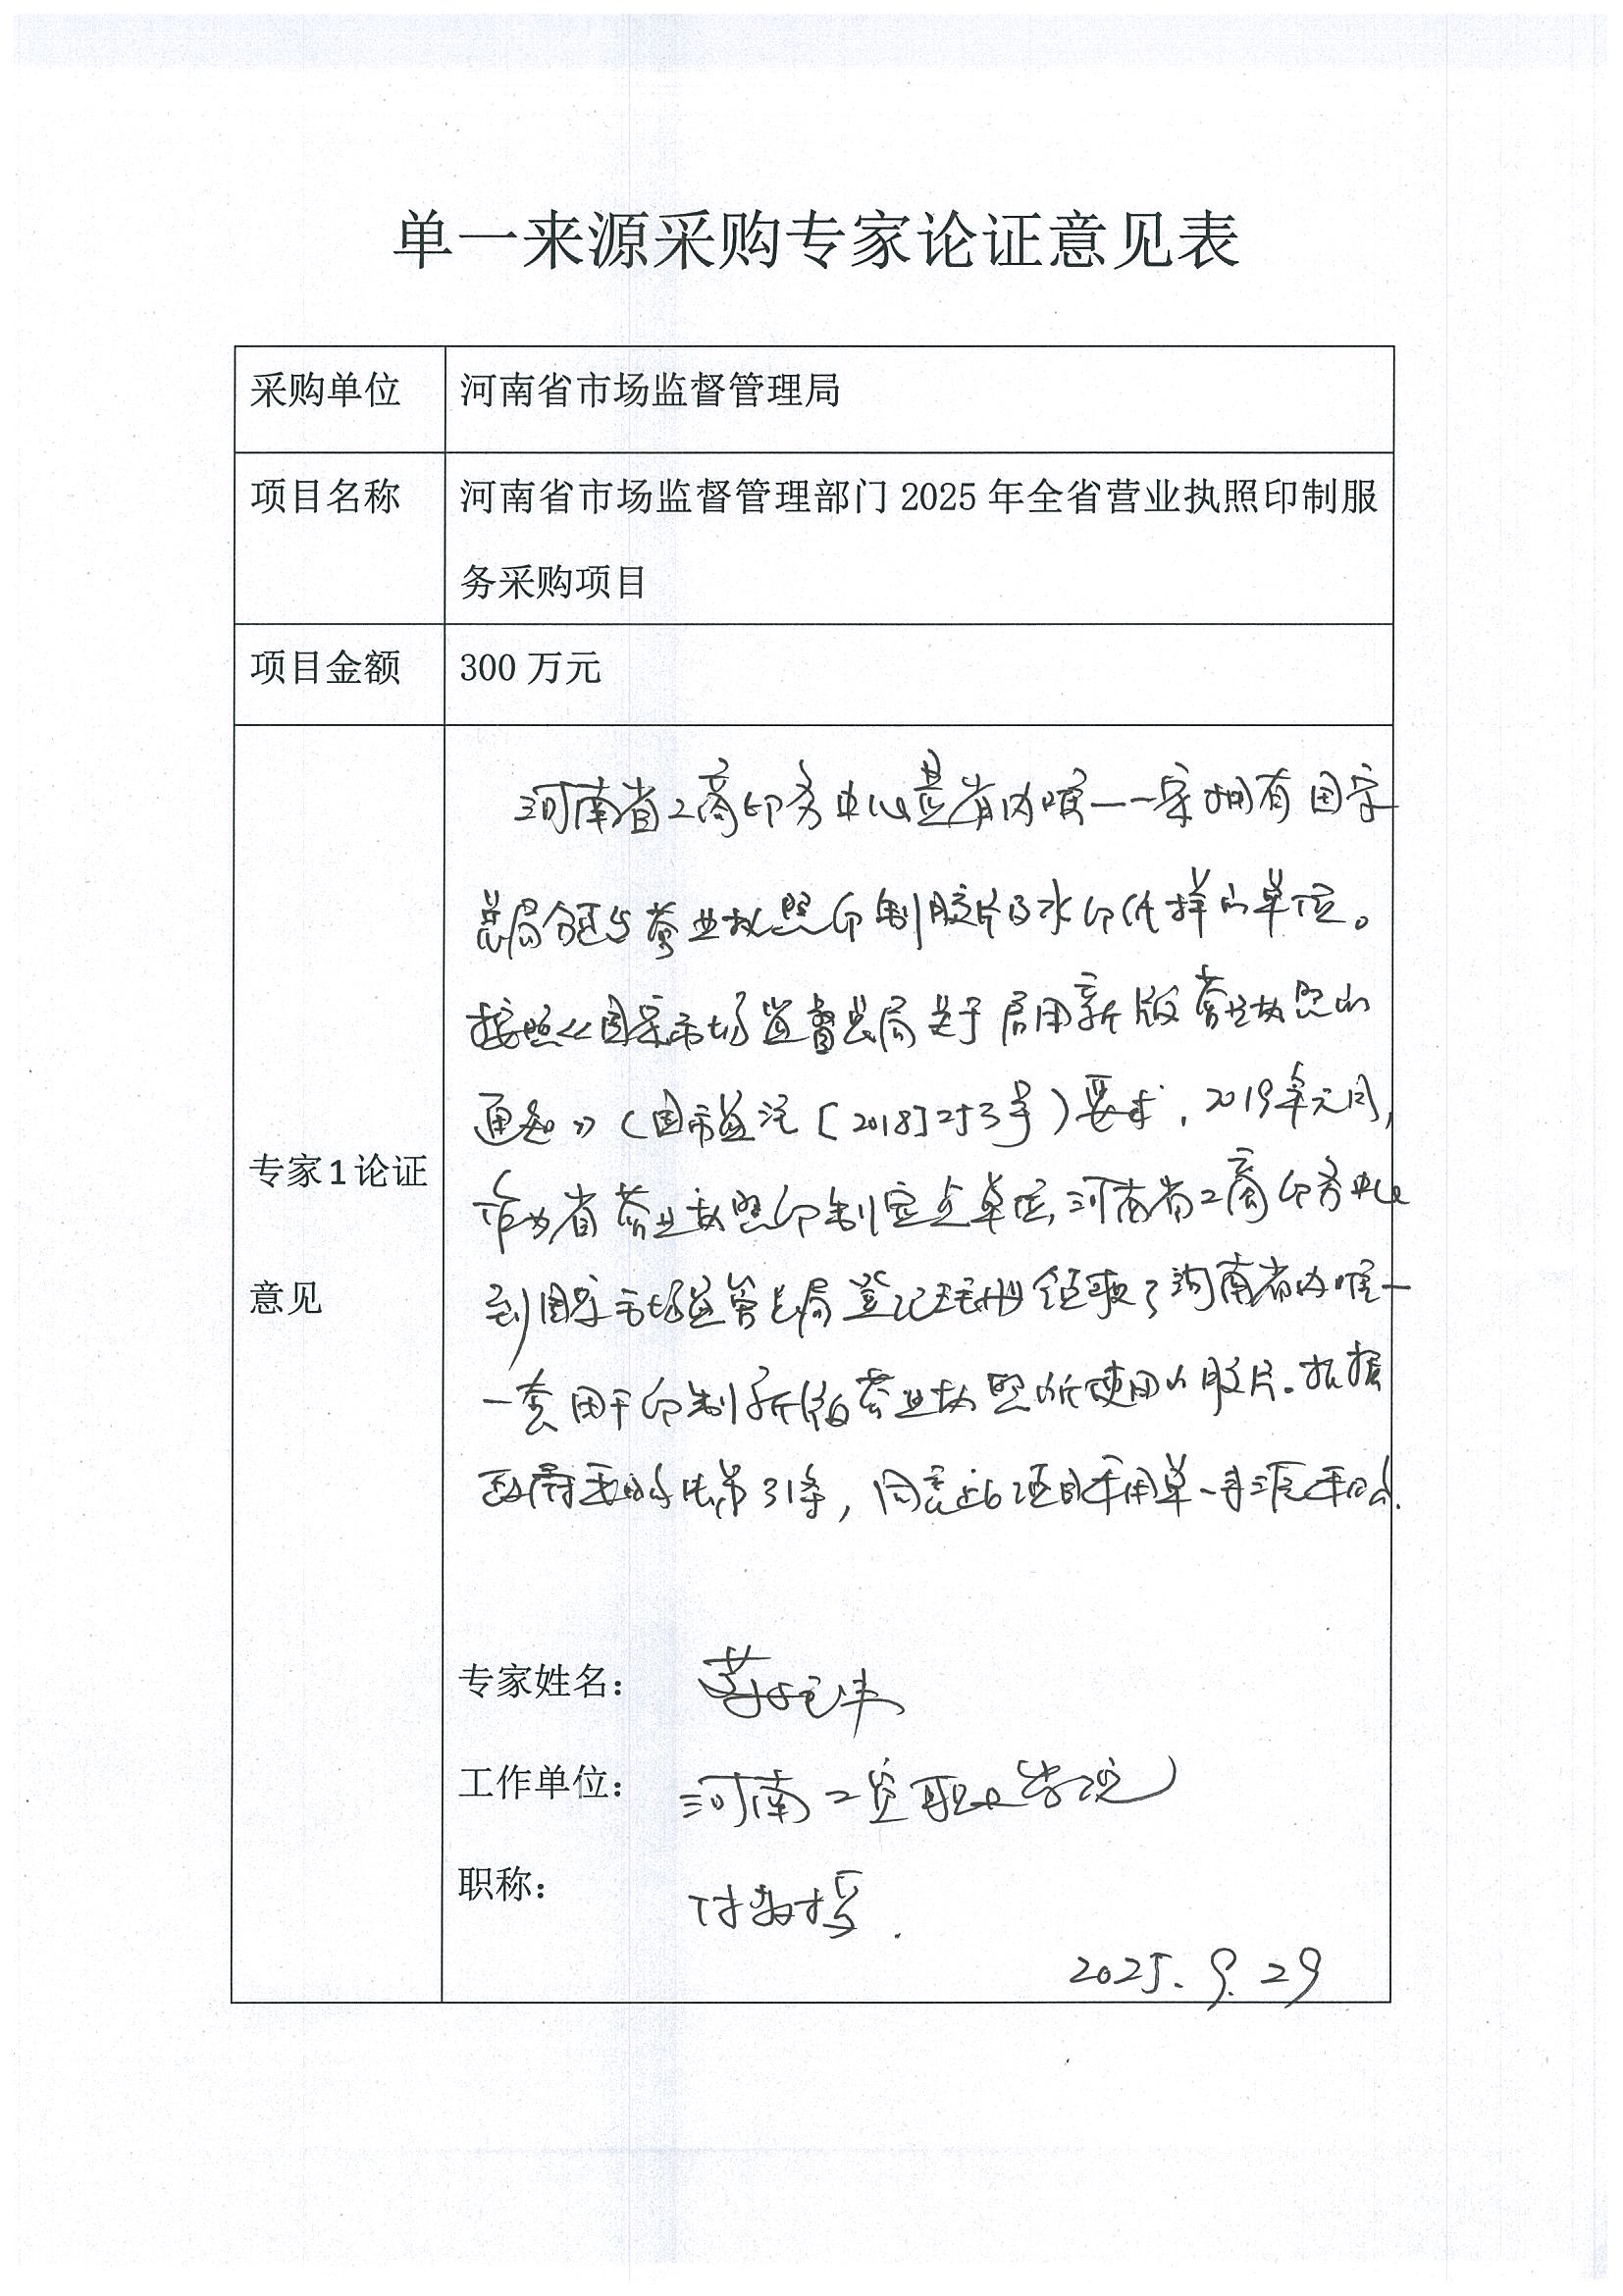 单一来源采购专家论证意见表
采购单位
河南省市场监督管理局
项目名称
河南省市场监督管理部门2025年全省营业执照印制服
务采购项目
项目金额
300万元
专家1论证
意见
河南省工商印务中心是省内唯一一家拥有国家
总局颁与营业执照印制胶片及水印纸样的单位。
按照《国家市场监督总局关于启用新版营业执照的
通知》(国市监注[2018]253号)要求,2019年元月,
作为省营业执照印制定点单位,河南省工商印务中心
到国家市场监管总局登记注册领取了河南省内唯一
一套用于印制新版营业执照所使用的胶片。根据
政府采购法第31条,同意此项目采用单一来源采购.
专家姓名:
工作单位:河南工贸职业学院
职称:付教授.
2025.9.29